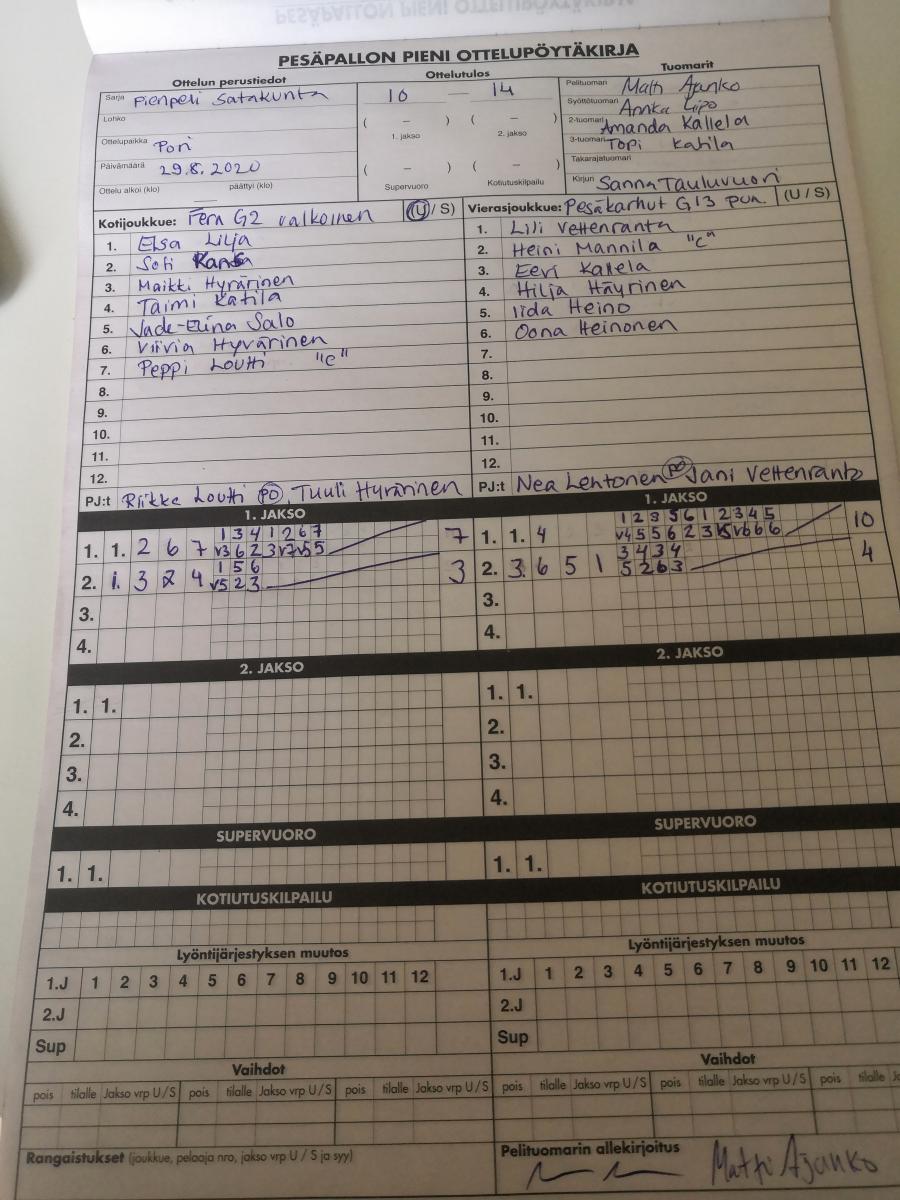 PESÄPALLON PIENI OTTELUPÖYTÄKIRJA
Ottelun perustiedot
Sarja Pienpeli Satakunta
Lohko
Ottelupaikka Pori
Päivämäärä 29.8.2020
Ottelu alkoi (klo) päättyi (klo)
Ottelutulos
10 — 14
( – ) ( – )
1. jakso 2. jakso
( – ) ( – )
Supervuoro Kotiutuskilpailu
Tuomarit
Pelituomari Matti Ajanko
Syöttötuomari Annka Lipo
2-tuomari Amanda Kallela
3-tuomari Topi Katila
Takarajatuomari
Kirjuri Sanna Tauluvuori
Kotijoukkue: Fera G2 valkoinen (U / S)
1. Elsa Lilja
2. Sofi
3. Maikki Hyvärinen
4. Taimi Katila
5. Jade-Elina Salo
6. Viivia Hyvärinen
7. Peppi Loutti "C"
8.
9.
10.
11.
12.
PJ:t Riikka Loutti PO, Tuuli Hyvärinen
Vierasjoukkue: Pesäkarhut G13 pun. (U / S)
1. Lili Vettenranta
2. Heini Mannila "C"
3. Eevi Kallela
4. Hilja Häyrinen
5. Iida Heino
6. Oona Heinonen
7.
8.
9.
10.
11.
12.
PJ:t Nea Lehtonen PO Jani Vettenranta
1. JAKSO
1 3 4 1 2 6 7
1. 1. 2 6 7 v3 6 2 3 v7 v5 5 7
1 5 6
2. 1. 3 2 4 v5 2 3 3
3.
4.
1. JAKSO
1 2 3 5 6 1 2 3 4 5
1. 1. 4 v4 5 5 6 2 3 v5 v6 6 6 10
3 4 3 4
2. 3. 6 5 1 5 2 6 3 4
3.
4.
2. JAKSO
1. 1.
2.
3.
4.
2. JAKSO
1. 1.
2.
3.
4.
SUPERVUORO
1. 1.
SUPERVUORO
1. 1.
KOTIUTUSKILPAILU
KOTIUTUSKILPAILU
Lyöntijärjestyksen muutos
1.J 1 2 3 4 5 6 7 8 9 10 11 12
2.J
Sup
Lyöntijärjestyksen muutos
1.J 1 2 3 4 5 6 7 8 9 10 11 12
2.J
Sup
Vaihdot
pois tilalle Jakso vrp U / S pois tilalle Jakso vrp U / S pois tilalle Jakso vrp U / S
Vaihdot
pois tilalle Jakso vrp U / S pois tilalle Jakso vrp U / S pois tilalle
Rangaistukset (joukkue, pelaaja nro, jakso vrp U / S ja syy)
Pelituomarin allekirjoitus
Matti Ajanko